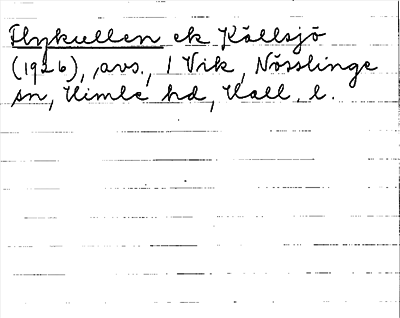 Flykullen ek Källsjö
(1926), avs., 1 Vik, Nösslinge
sn, Himle hd, Hall. l.